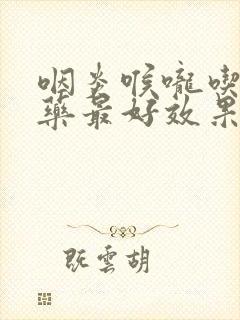 咽炎喉嚨喫
藥最好效果
既雲胡